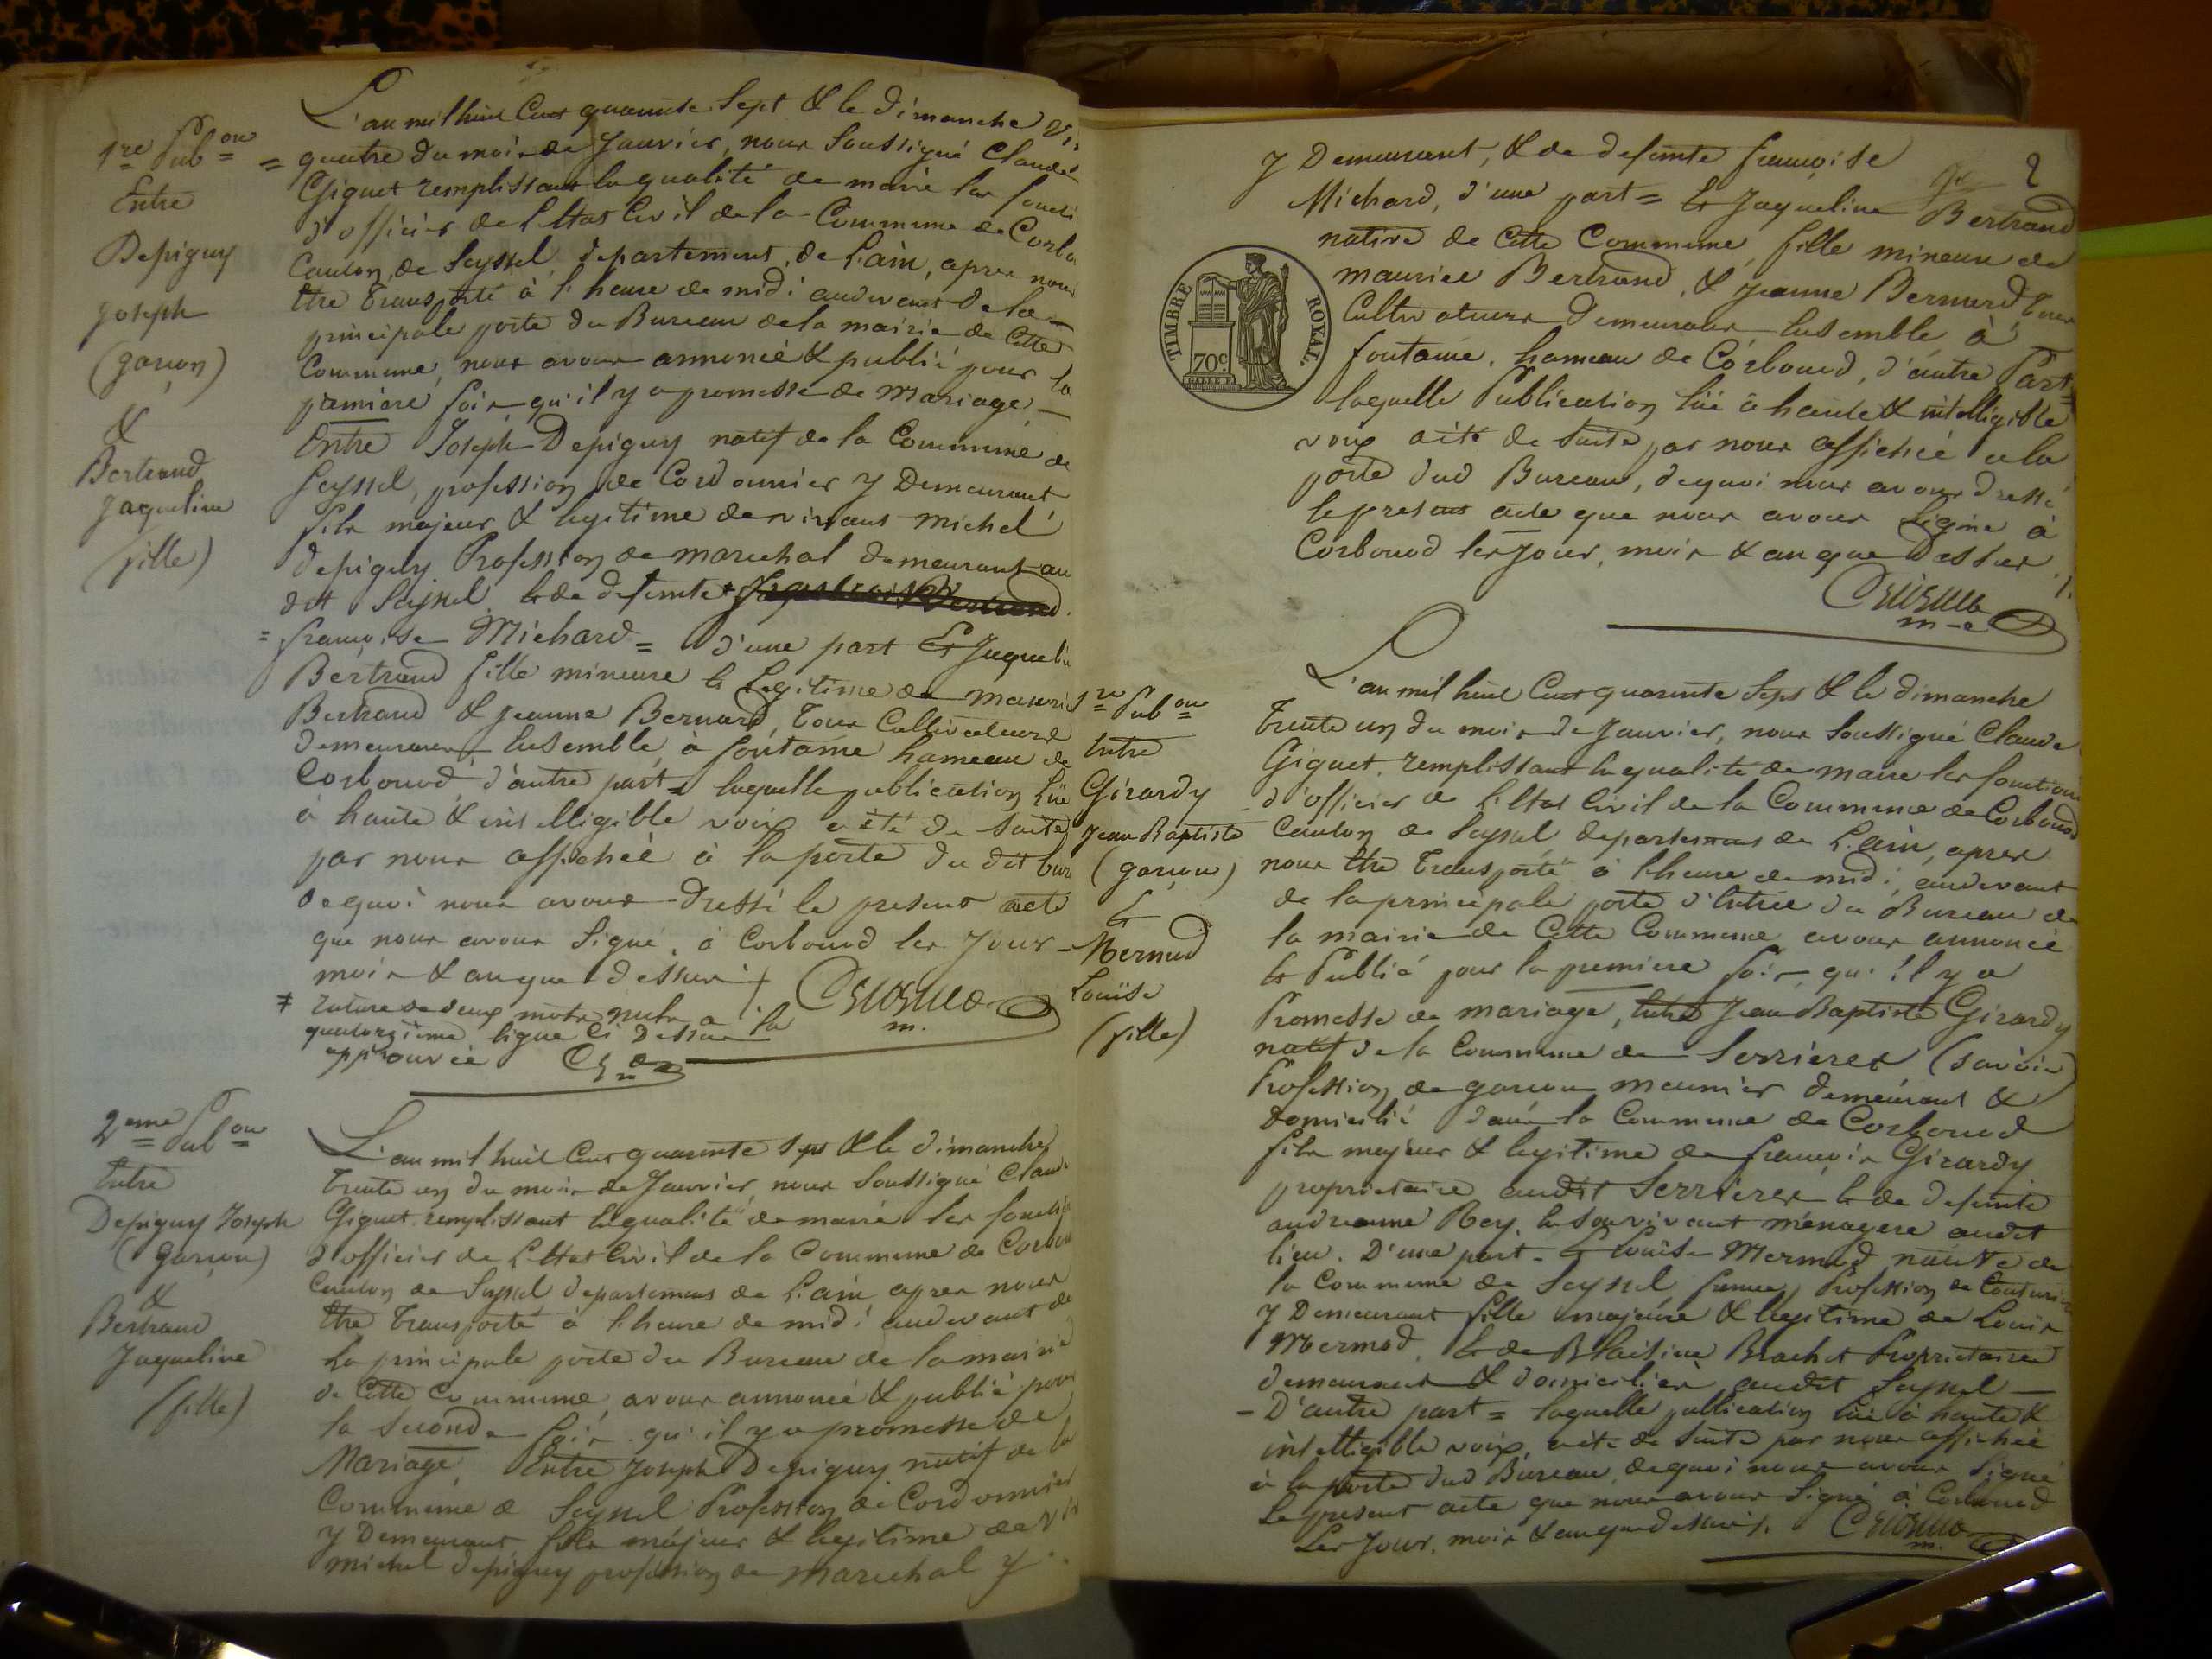 1re Pubon
Entre
Depigny
joseph
(garçon)
&
Bertrand
jaqueline
(fille)
L'an mil huit Cent quarante Sept & le dimanche
= quatre du mois de Janvier, nous Soussigné Claude
Giguet remplissant la qualité de maire les foncti
d'officier de l'Etat Civil de la Commune de Corbo
Canton de Seyssel, departement de L'ain, apres nous
Etre Transporté à l'heure de midi audevant de la
principale porte du Bureau de la mairie de Cette
Commune, nous avons annoncé & publié pour la
premiere fois, qu'il y a promesse de Mariage
Entre Joseph Depigny natif de la Commune de
Seyssel, profession de Cordonnier y Demeurant
fils majeur & legitime de vivant michel
depigny Profession de marechal demeurant au
dit Seyssel & de defunte
= françoise Michard = d'une part Et Jaqueli
Bertrand fille mineure & Legitime de mauri
Bertrand & jeanne Bernard, Tous Cultivateurs
demeurant Ensemble à fontaine hameau de
Corbonod, d'autre part = laquelle publication lüe
à haute & intelligible voix a été de suite
par nous affichée à la porte du dit bur
de quoi nous avons dressé le present acte
que nous avons Signé, à Corbonod les Jour
mois & an que dessus
m.
‡ rature de deux mots nuls a la
quatorzieme ligne Ci Dessus
approuvée
2eme Pubon
Entre
Depigny Joseph
(garçon)
&
Bertrand
Jaqueline
(fille)
L'an mil huit Cent quarante sept & le dimanche
trente un du mois de Janvier, nous Soussigné Claude
Giguet remplissant la qualité de maire les foncti
d'officier de L'Etat Civil de la Commune de Corbon
Canton de Seyssel departement de L'ain apres nous
Etre transporté à l'heure de midi audevant de
la principale porte du Bureau de la mairie
de Cette Commune, avons annoncé & publié pour
la Seconde fois qu'il y a promesse de
Mariage, Entre Joseph Depigny natif de la
Commune de Seyssel Profession de Cordonnier
y Demeurant fils majeur & legitime de
michel depigny profession de marechal y
2
y Demeurant, & de defunte françoise
Michard, d'une part = & Jaqueline Bertrand
native de Cette Commune, fille mineure de
maurice Bertrand, & jeanne Bernard Tous
Cultivateurs demeurant Ensemble à
fontaine, hameau de Corbonod, d'autre Part =
laquelle Publication lüe à haute & intelligible
voix a été de suite par nous affichée a la
porte dud Bureau, de quoi nous avons dressé
le present acte que nous avons Signé à
Corbonod les Jour, mois & an que Dessus
TIMBRE ROYAL
70c.
1re Pubon
Entre
Girardy
Jean Baptiste
(garçon)
&
Mermod
Louise
(fille)
L'an mil huit Cent quarante Sept & le dimanche
trente un du mois de Janvier, nous Soussigné Claude
Giguet, remplissant la qualité de maire les fonctions
d'officier de L'Etat Civil de la Commune de Corbonod
Canton de Seyssel, departement de L'ain, apres
nous Etre Transporté à l'heure de midi, audevant
de la principale porte d'Entrée du Bureau de
la mairie de Cette Commune, avons annoncé
& Publié pour la premiere fois, qu'il y a
Promesse de mariage, Entre Jean Baptiste Girardy
natif de la Commune de Serrieres (savoie)
Profession de garçon meunier demeurant &
Domicilié dans la Commune de Corbonod
fils majeur & legitime de françois Girardy
proprietaire audit Serrieres & de defunte
andreanne Rey, le Survivant ménagere audit
lieu. D'une part. & Louise Mermod native de
la Commune de Seyssel, Profession de Couturier
y Demeurant fille majeure & legitime de Louis
Mermod, & de Brachet Proprietaires
demeurant & domiciliés audit Seyssel
- D'autre part = laquelle publication lüe à haute &
intelligible voix, a été de Suite par nous affichée
à la porte dud Bureau, de quoi nous avons Signé
Le present acte que nous avons Signé à Corbonod
Les Jour, mois & an que dessus
m.